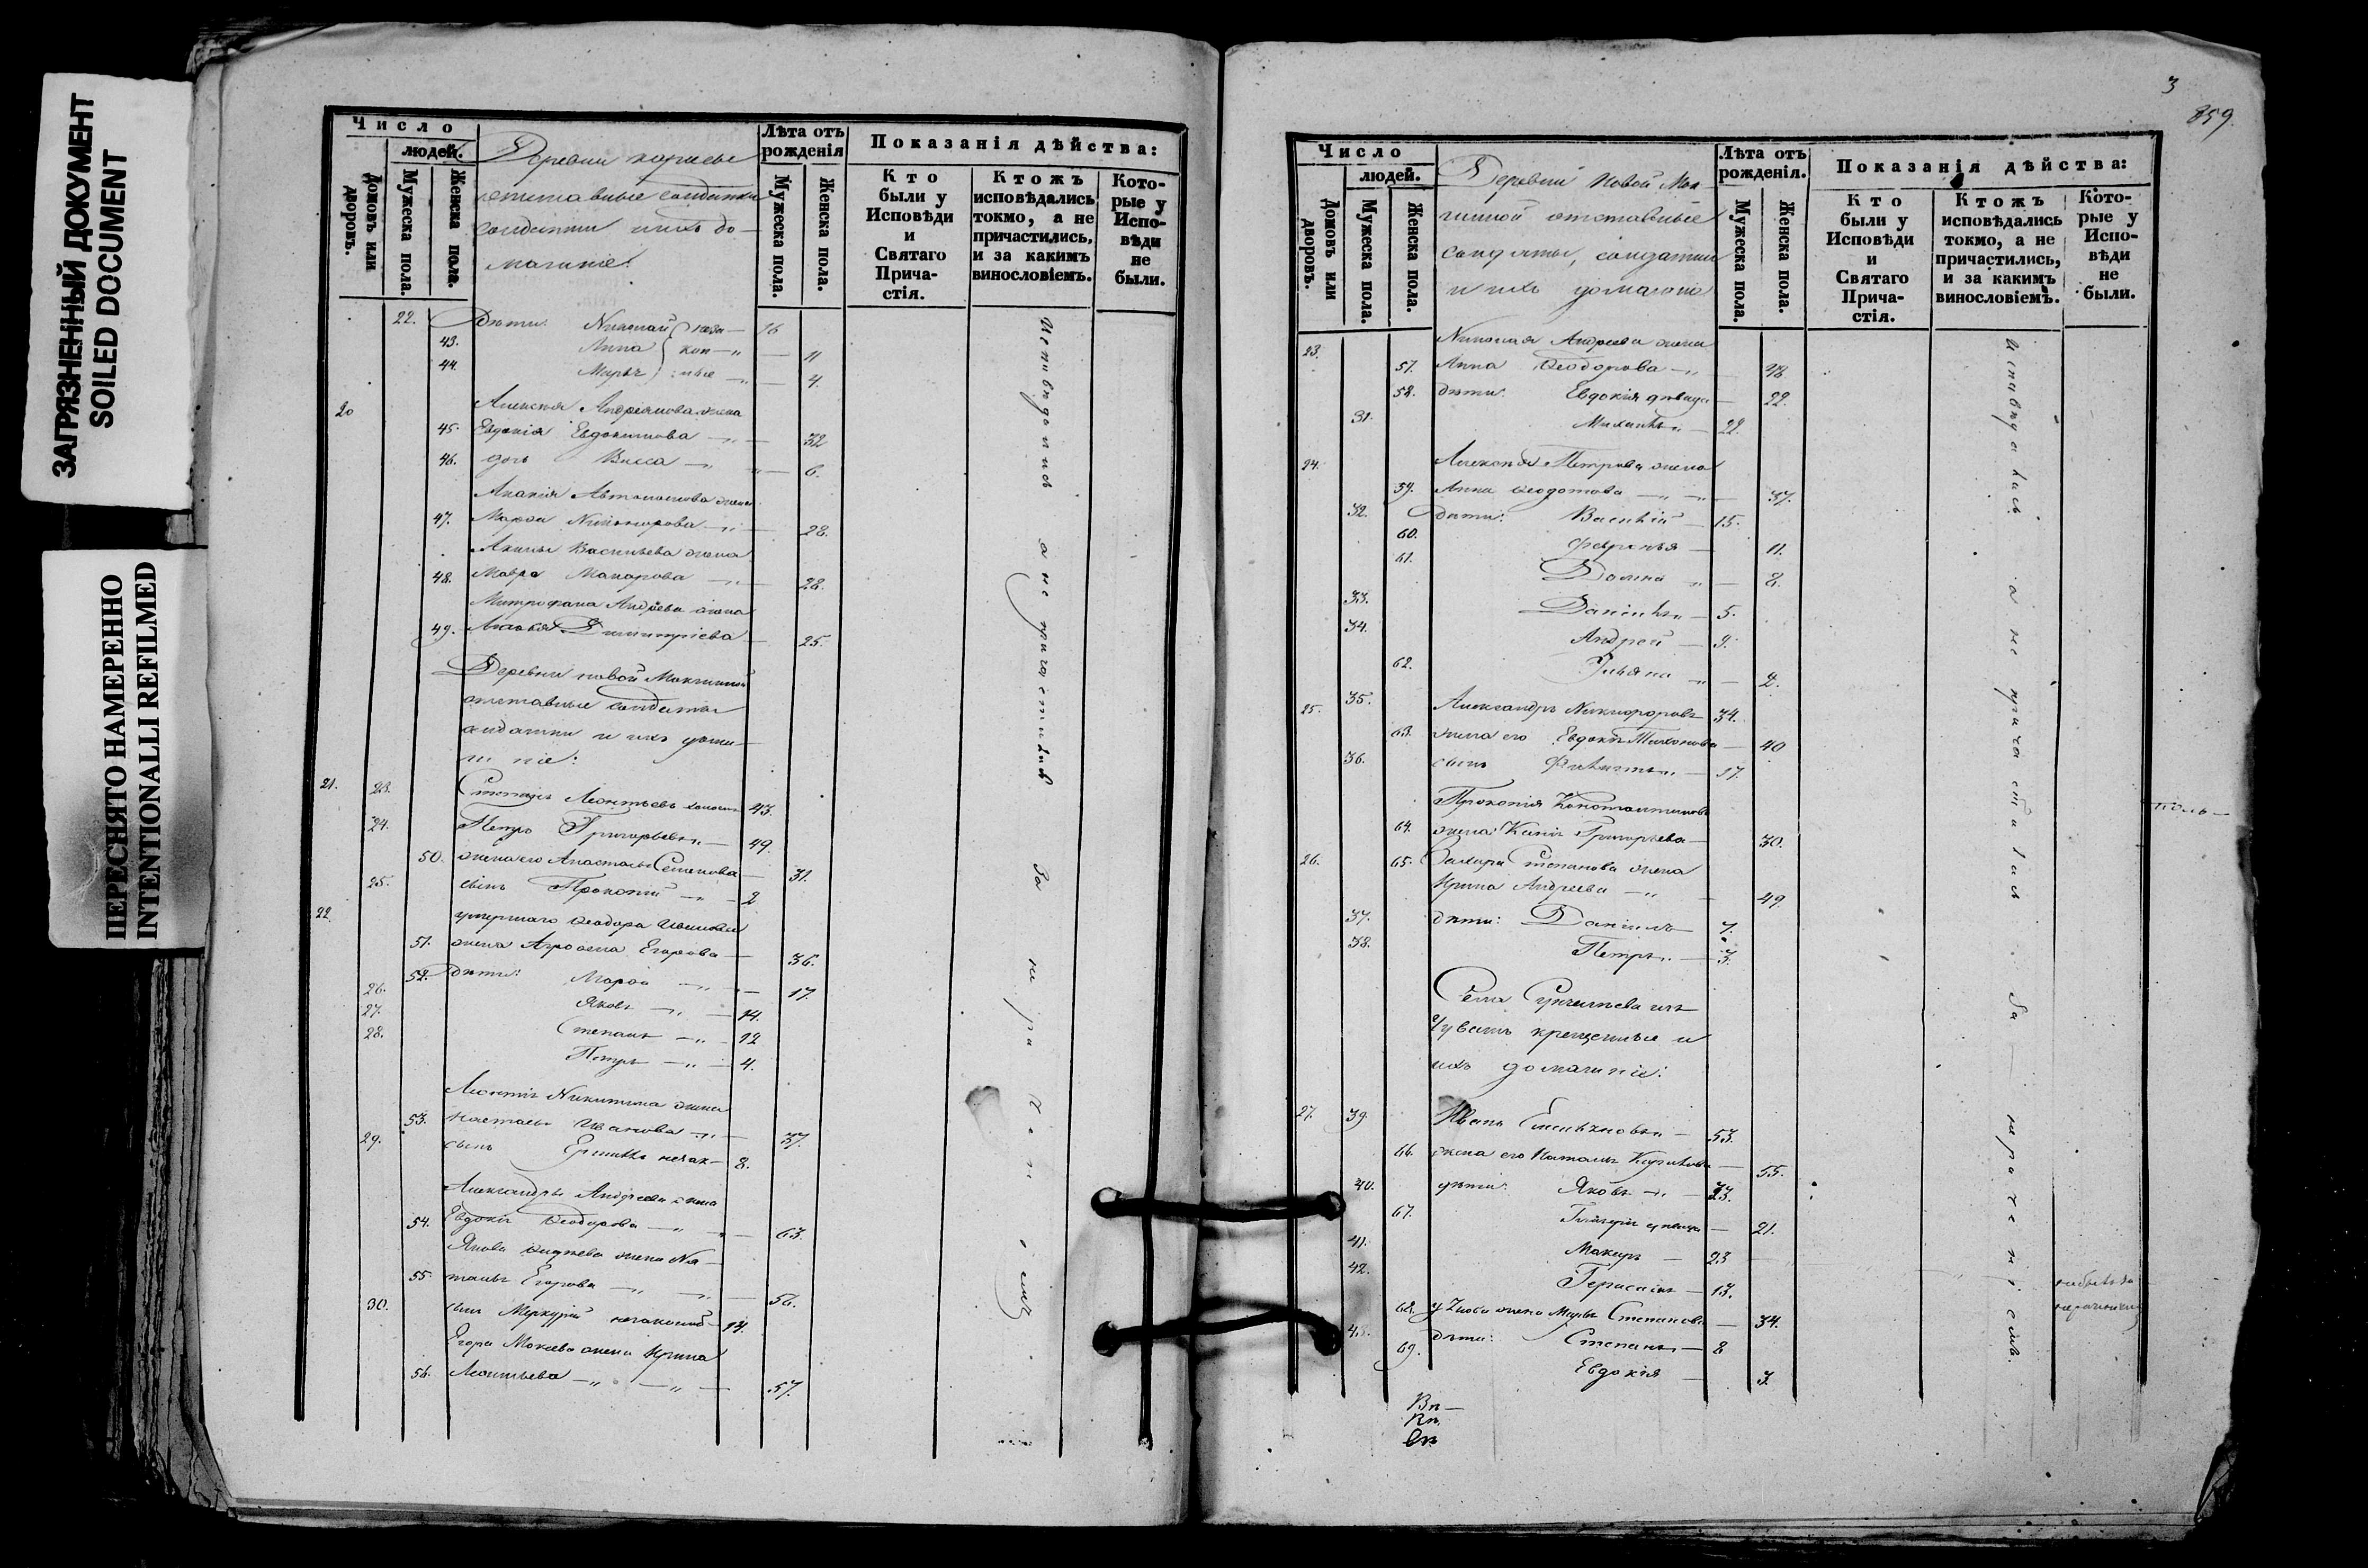 ЗАГРЯЗНЕННЫЙ ДОКУМЕНТ
SOILED DOCUMENT
ПЕРЕСНЯТО НАМЕРЕННО
INTENTIONALLI REFILMED
Число
людей.
Домовъ или дворовъ.
Мужеска пола.
Женска пола.
Деревни
отставные солдатки
солдатки ихъ до-
машніе:
Лѣта отъ рожденія
Мужеска пола.
Женска пола.
Показанія дѣйства:
Кто были у Исповѣди и Святаго Прича-стія.
Ктожъ исповѣдались токмо, а не причастились, и за какимъ винословіемъ.
Кото-рые у Испо-вѣди не были.
22. Дѣти: Николай 16
43. Анна 11
44. Марья 4.
20 Алексѣя Андреянова жена
45. Евдокія Евдокимова 32
46. дочь Васса 6.
Акакія Автономова жена
47. Марфа Никифорова 28.
Акима Васильева жена
48. Мавра Макарова 28.
Митрофана Андреева жена
49. Димитріева 25.
Деревни новой Мокшиной
отставные солдаты
солдатки и ихъ дома-
шніе:
21. 23. Степанъ Леонтьевъ холостъ 43.
24. Петръ Григорьевъ 49.
50. жена его Анастасья Семенова 31.
25. сынъ Прокопій 2
22. умершаго Ѳеодора Иванова
51. жена Агрофена Егорова 36.
52. Дѣти: Марфа 17.
26. Яковъ 14.
27. Степанъ 12
28. Петръ 4.
Леонтія Никитина жена
53. Настасья Иванова 37.
29. сынъ Ермилъ 8.
Александра Андреева жена
54. Евдокія Ѳеодорова 63.
Якова жена На-
55. талья Егорова 56.
30. сынъ Меркурій 14.
Егора Мокеева жена Ирина
56. Леонтьева 57.
Исповѣдались а не причастились За нераченіемъ
3
859.
Число
людей.
Домовъ или дворовъ.
Мужеска пола.
Женска пола.
Деревни Новой Мок
шиной отставные
солдаты, солдатки
и ихъ домашніе
Лѣта отъ рожденія.
Мужеска пола.
Женска пола.
Показанія дѣйства:
Кто были у Исповѣди и Святаго Прича-стія.
Ктожъ исповѣдались токмо, а не причастились, и за какимъ винословіемъ.
Кото-рые у Испо-вѣди не были.
23. Николая Андреева жена
57. Анна Ѳеодорова 48
58. дѣти: Евдокія дѣвица 22.
31. Михаилъ 22.
24. Алексѣя Петрова жена
59. Анна Ѳеодотова 37.
32. Дѣти: Василій 15.
60. Февронья 11.
61. Домна 8.
33. Даніилъ 5.
34. Андрей 9.
62. Ульяна 2.
25. 35. Александръ Никифоровъ 34.
63. жена его Евдокія Тихонова 40
36. сынъ Филиппъ 17.
Прокопія Константинова
64. жена: Григорьева 30.
26. 65. Захара Степанова жена
Ирина Андреева 49
37. дѣти: Даніилъ 7.
38. Петръ 3.
Села
Чувашъ крещенные и
ихъ домашніе:
27. 39. Иванъ Емельяновъ 53.
66. жена его Наталья Кирилова 55.
40. дѣти: Яковъ 33.
67. Гликерія дѣвица 21.
41. Макаръ 23
42. Герасимъ 13.
68. у Якова жена Марья Степанова 34.
43. дѣти: Степанъ 8
69. Евдокія 3.
Исповѣдались а не причастились За нераченіемъ.
небыли за
нераченіемъ